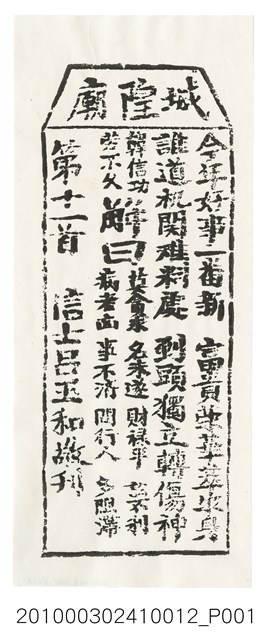 城隍廟
今年好事一番新 富貴榮華萃汝身
誰道機関难料處 到頭獨立轉傷神
韓信功勞不久 解曰 名未遂 財祿平 訟不利
病者凶 事不済 問行人 多阻滯
第十一首 信士呂玉和敬刊
201000302410012_P001